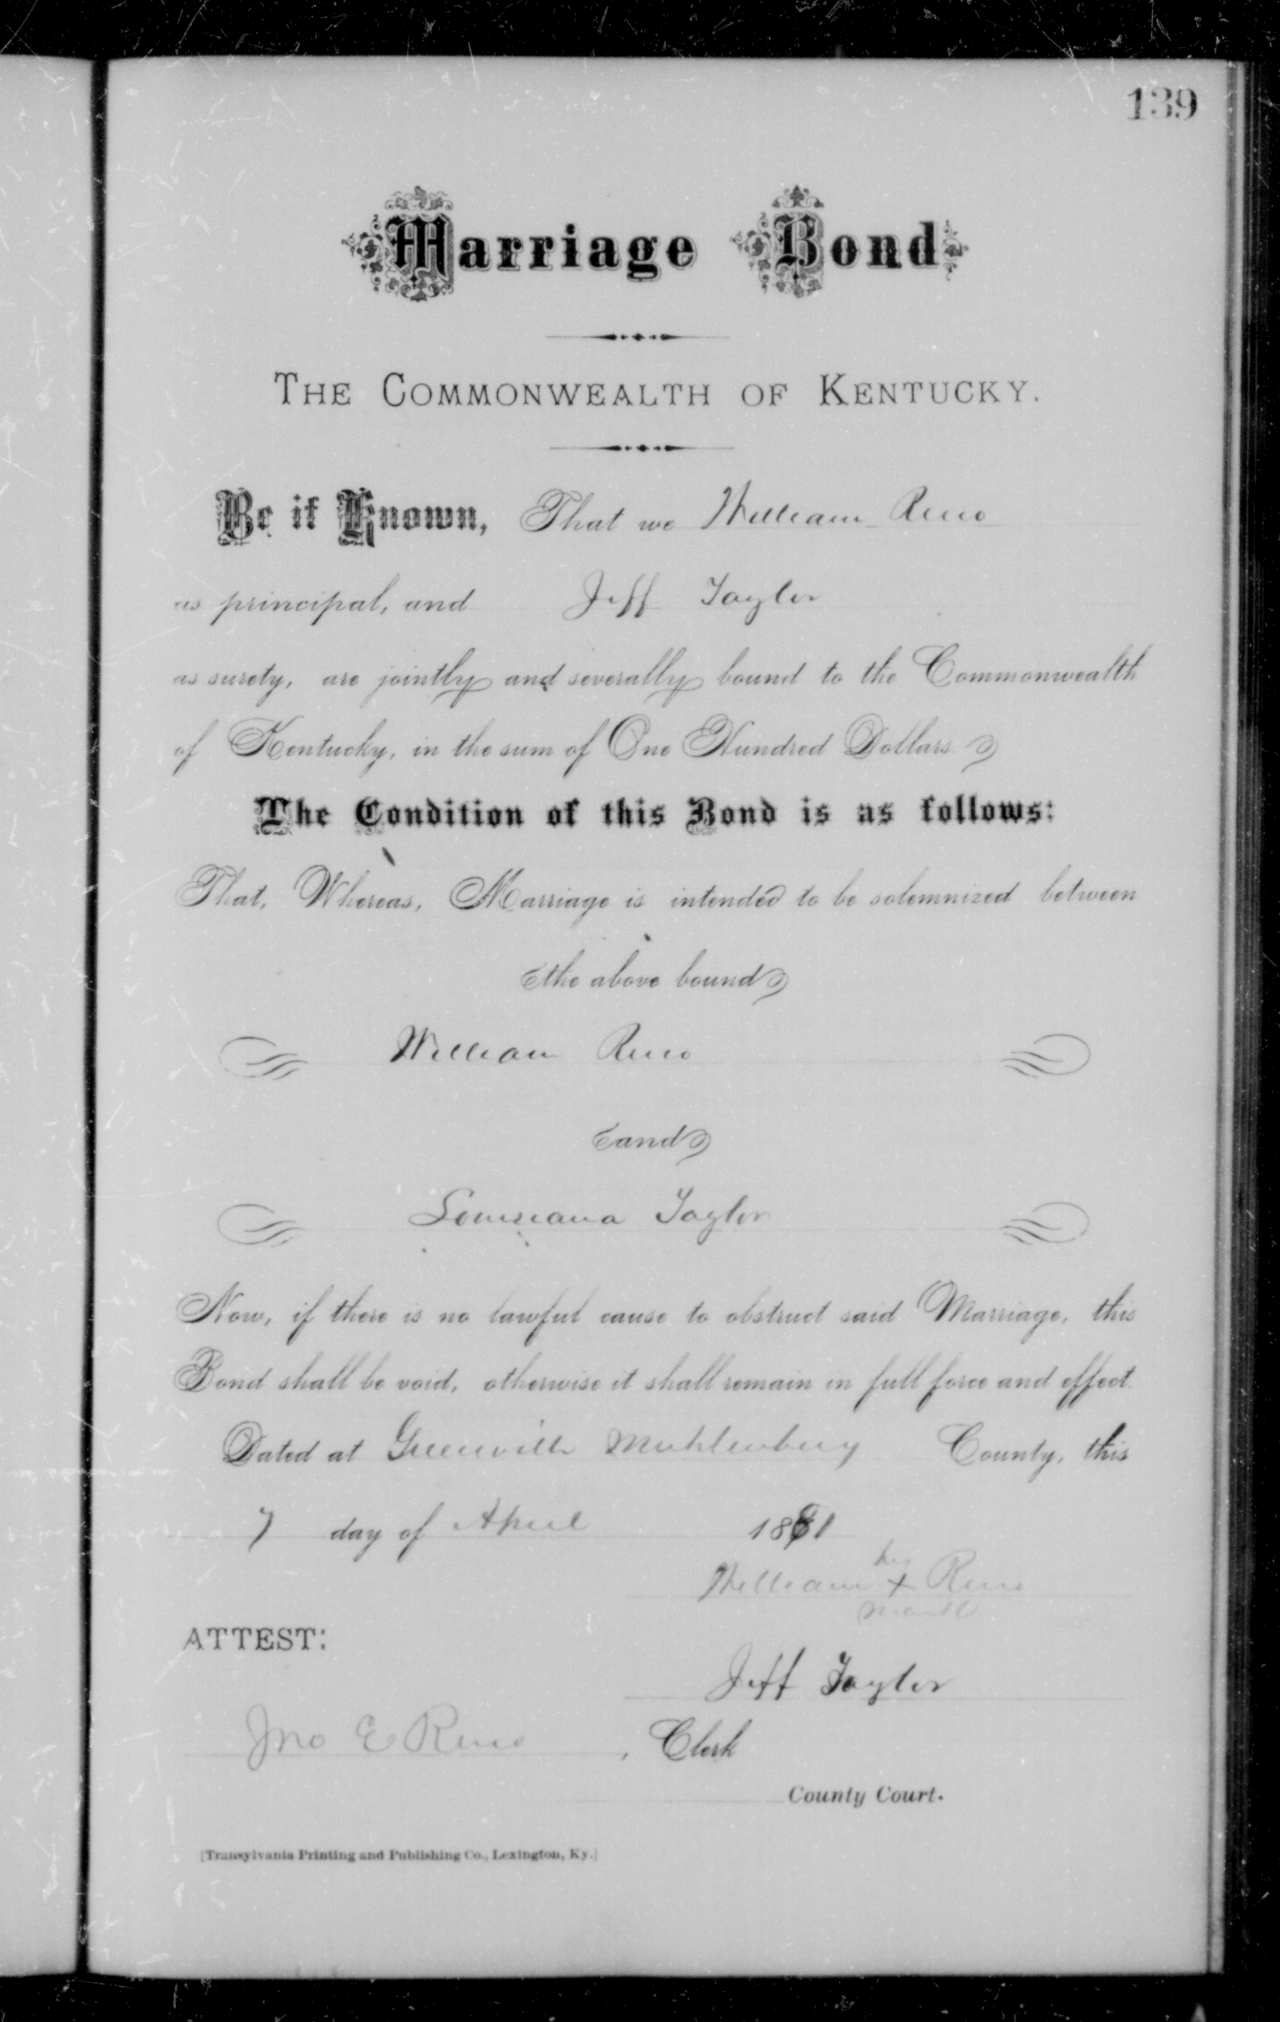 139
Marriage Bond
THE COMMONWEALTH OF KENTUCKY.
Be it Known, That we William Reno
as principal, and Jeff Taylor
as surety, are jointly and severally bound to the Commonwealth
of Kentucky, in the sum of One Hundred Dollars
The Condition of this Bond is as follows:
That, Whereas, Marriage is intended to be solemnized between
the above bound
William Reno
and
Louisiana Taylor
Now, if there is no lawful cause to obstruct said Marriage, this
Bond shall be void, otherwise it shall remain in full force and effect.
Dated at Greenville Muhlenberg County, this
7 day of April 1881
his
William x Reno
mark
ATTEST:
Jeff Taylor
Jno E Reno, Clerk
County Court.
[Transylvania Printing and Publishing Co., Lexington, Ky.]